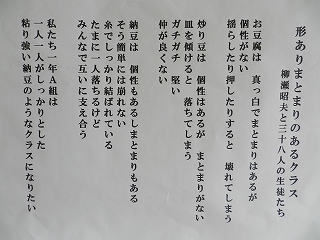 形ありまとまりのあるクラス
柳瀬昭夫と三十八人の生徒たち
お豆腐は　真っ白でまとまりはあるが
個性がない
揺らしたり押したりすると　壊れてしまう
炒り豆は　個性はあるが　まとまりがない
皿を傾けると　落ちてしまう
ガチガチ　堅い
仲が良くない
納豆は　個性もあるしまとまりもある
そう簡単には崩れない
糸でしっかり結ばれている
たまに一人落ちるけど
みんなで互いに支え合う
私たち一年A組は
一人一人がしっかりとした
粘り強い納豆のようなクラスになりたい